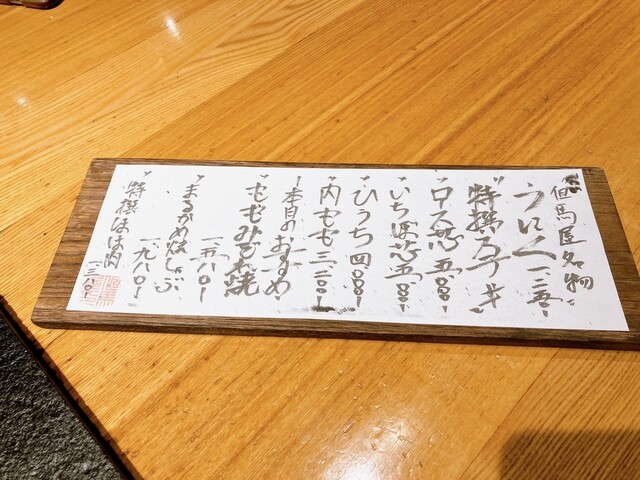 但馬屋名物
うにく 一、二五〇-
特撰ステーキ
ロース芯 五、八〇〇-
いちぼ芯 五、八〇〇-
ひうち 四、八〇〇-
内もも 三、二八〇-
-本日のおすすめ-
ももみぞれ焼
一、五八〇-
まるかめ焼しゃぶ
一、九八〇-
特撰ほほ肉